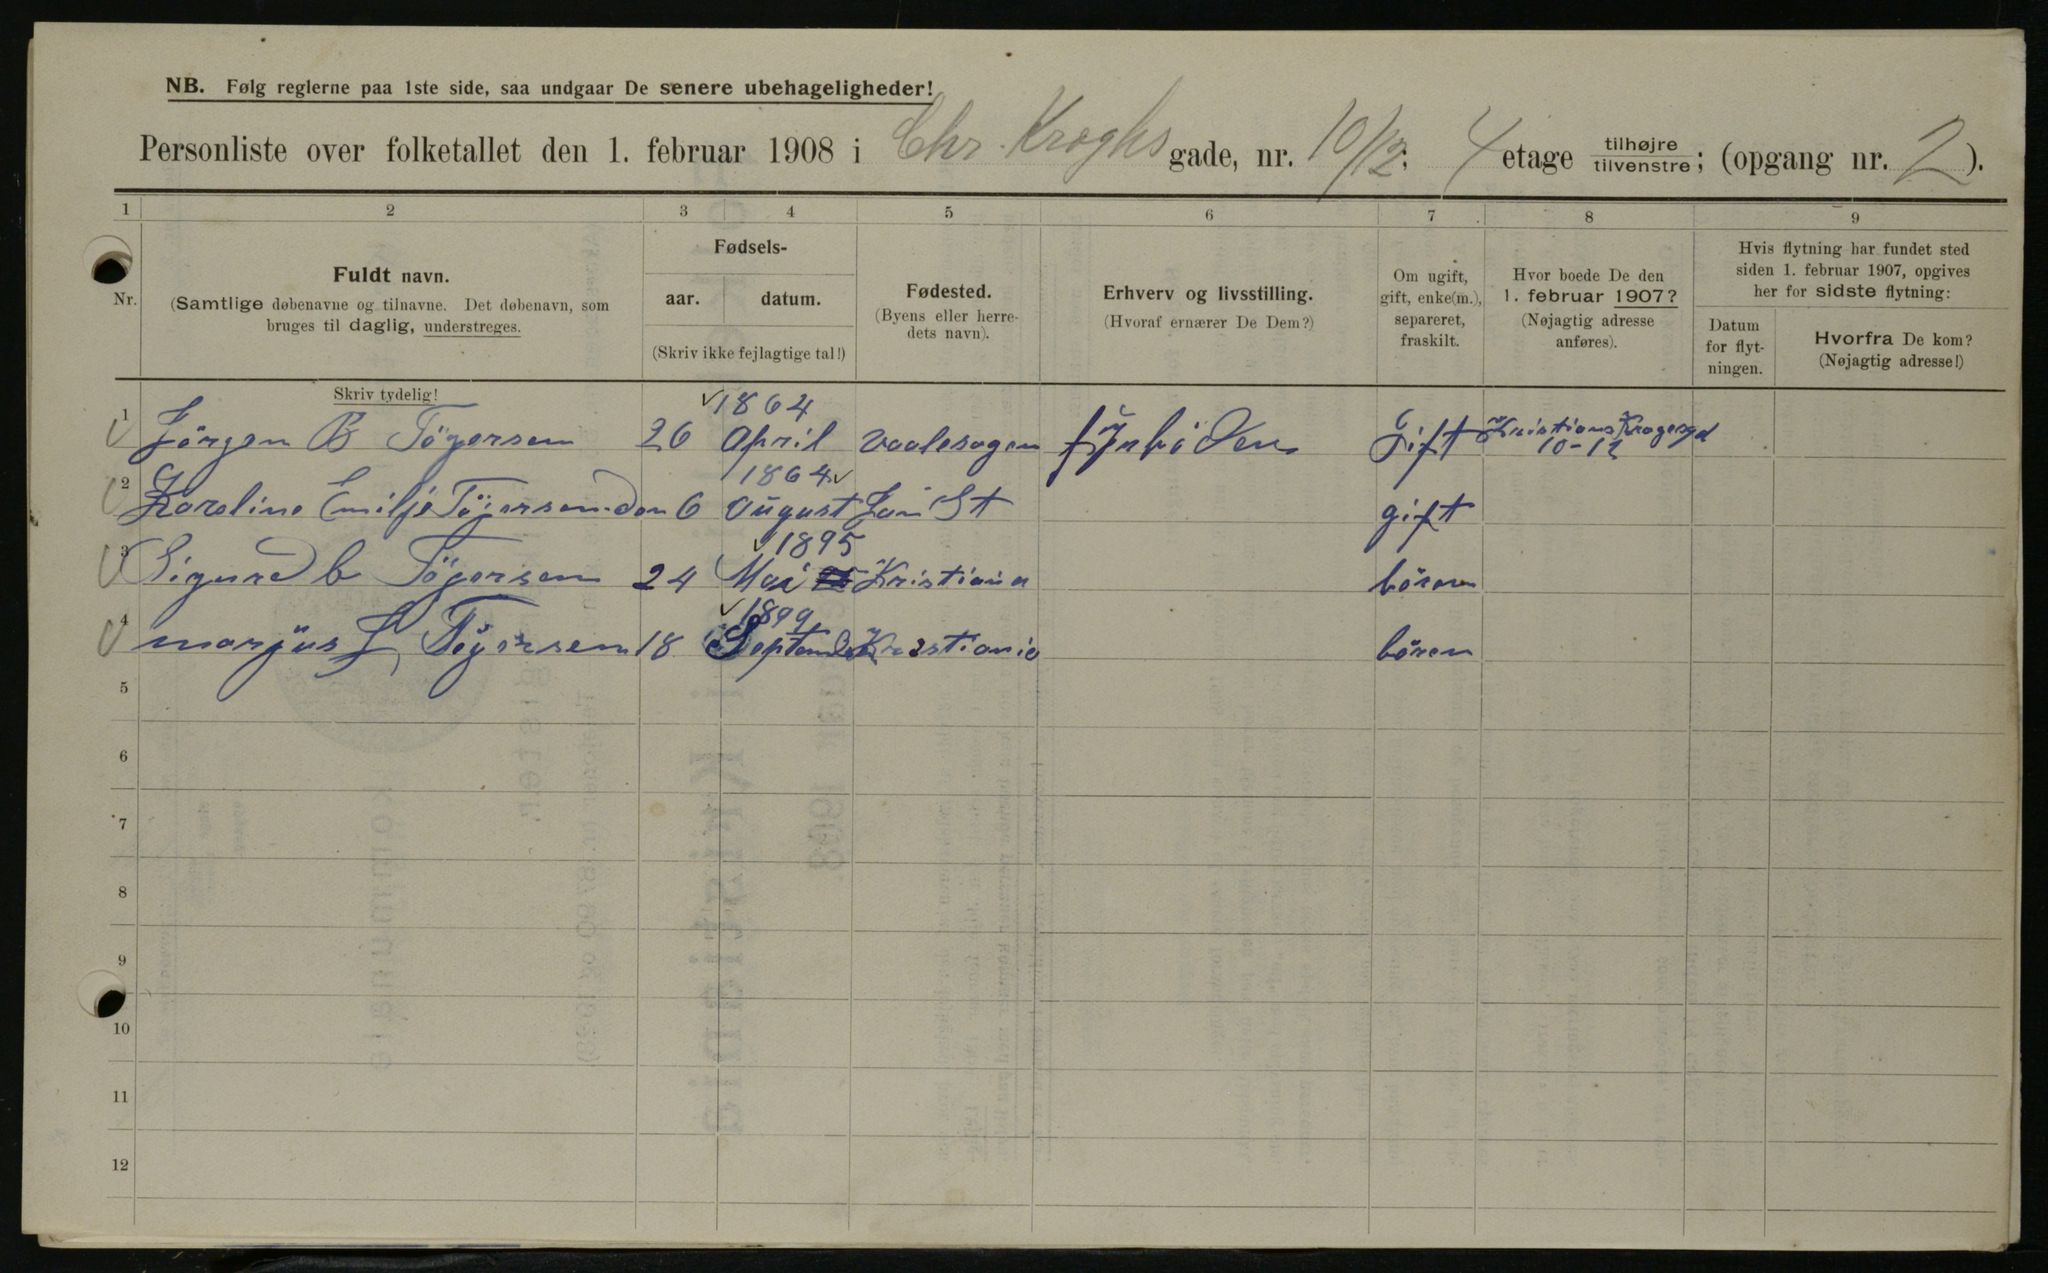 NB. Følg reglerne paa 1ste side, saa undgaar De senere ubehageligheder!
Personliste over folketallet den 1. februar 1908 i Chr. Kroghs gade, nr. 10/12; 4 etage tilhøjre tilvenstre; (opgang nr. 2).
1 2 3 4 5 6 7 8 9
Nr.
Fuldt navn.
(Samtlige døbenavne og tilnavne. Det døbenavn, som
bruges til daglig, understreges.
Skriv tydelig!
Fødsels-
aar. datum.
(Skriv ikke fejlagtige tal!)
Fødested.
(Byens eller herre-
dets navn).
Erhverv og livsstilling.
(Hvoraf ernærer De Dem?)
Om ugift,
gift, enke(m.),
separeret,
fraskilt.
Hvor boede De den
1. februar 1907?
(Nøjagtig adresse
anføres).
Hvis flytning har fundet sted
siden 1. februar 1907, opgives
her for sidste flytning:
Datum
for flyt-
ningen.
Hvorfra De kom?
(Nøjagtig adresse!)
1864
1 Jörgen B Tögersen 26 April Vaalesogen Gift Kristians Krogersgd
10-12
1864
2 Karoline Emilje Tögersen den 6 August gift
1895
3 Sigurd Tögersen 24 Mai Kristiania bören
1899
4 marjus Tögersen 18 September Kristiania bören
5
6
7
8
9
10
11
12